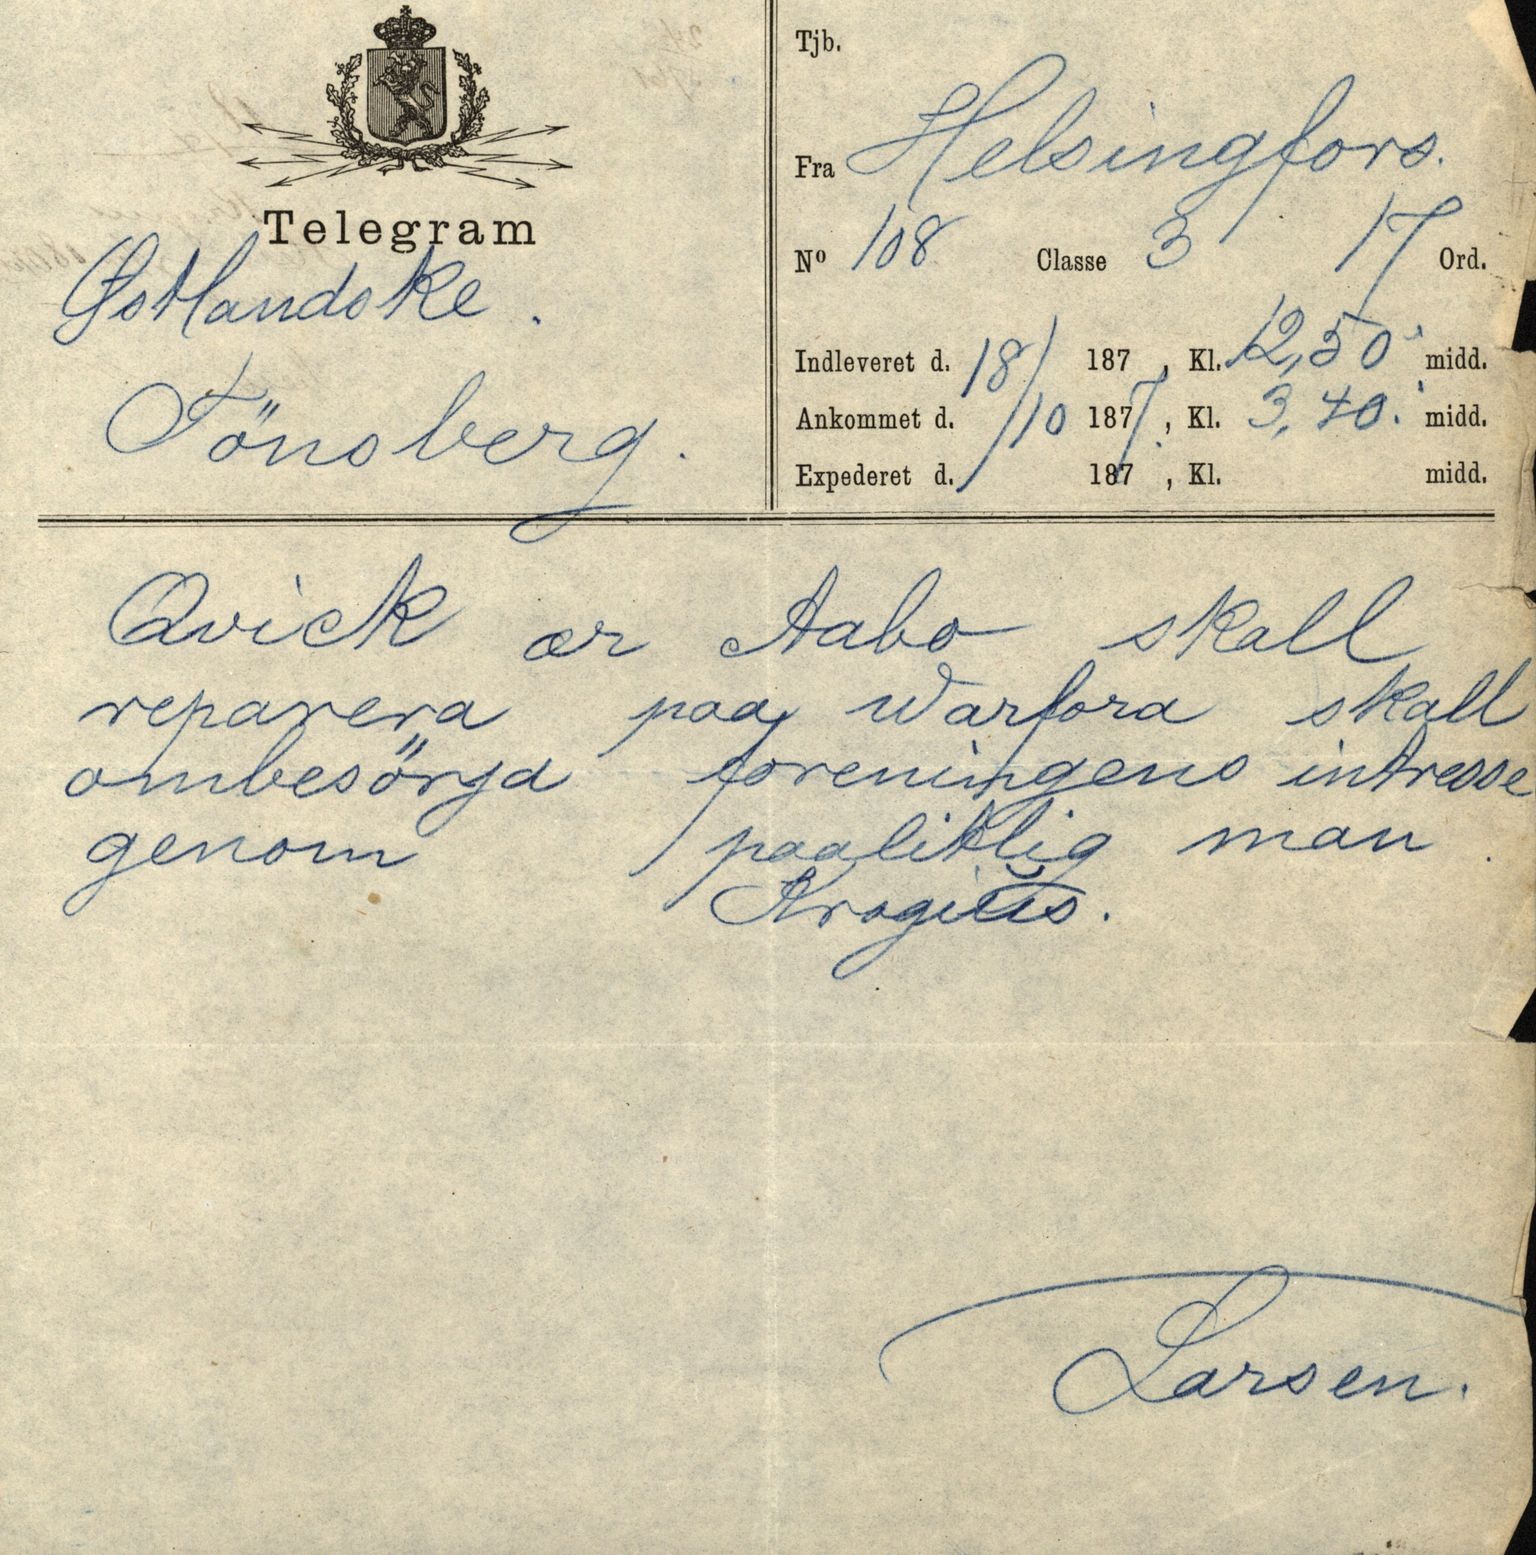 Telegram
Østlandske.
Tönsberg.
Tjb.
Fra Helsingfors.
No 108 Classe 3 17 Ord.
Indleveret d. 18/ 187 , Kl. 12,50 midd.
Ankommet d. /10 1877, Kl. 3,40. midd.
Expederet d. 187 , Kl. midd.
Qvick ær Aabo skall
reparera paa warfora skall
ombesörja foreningens intresse
genom paalitlig man
Krogius.
Larsen.